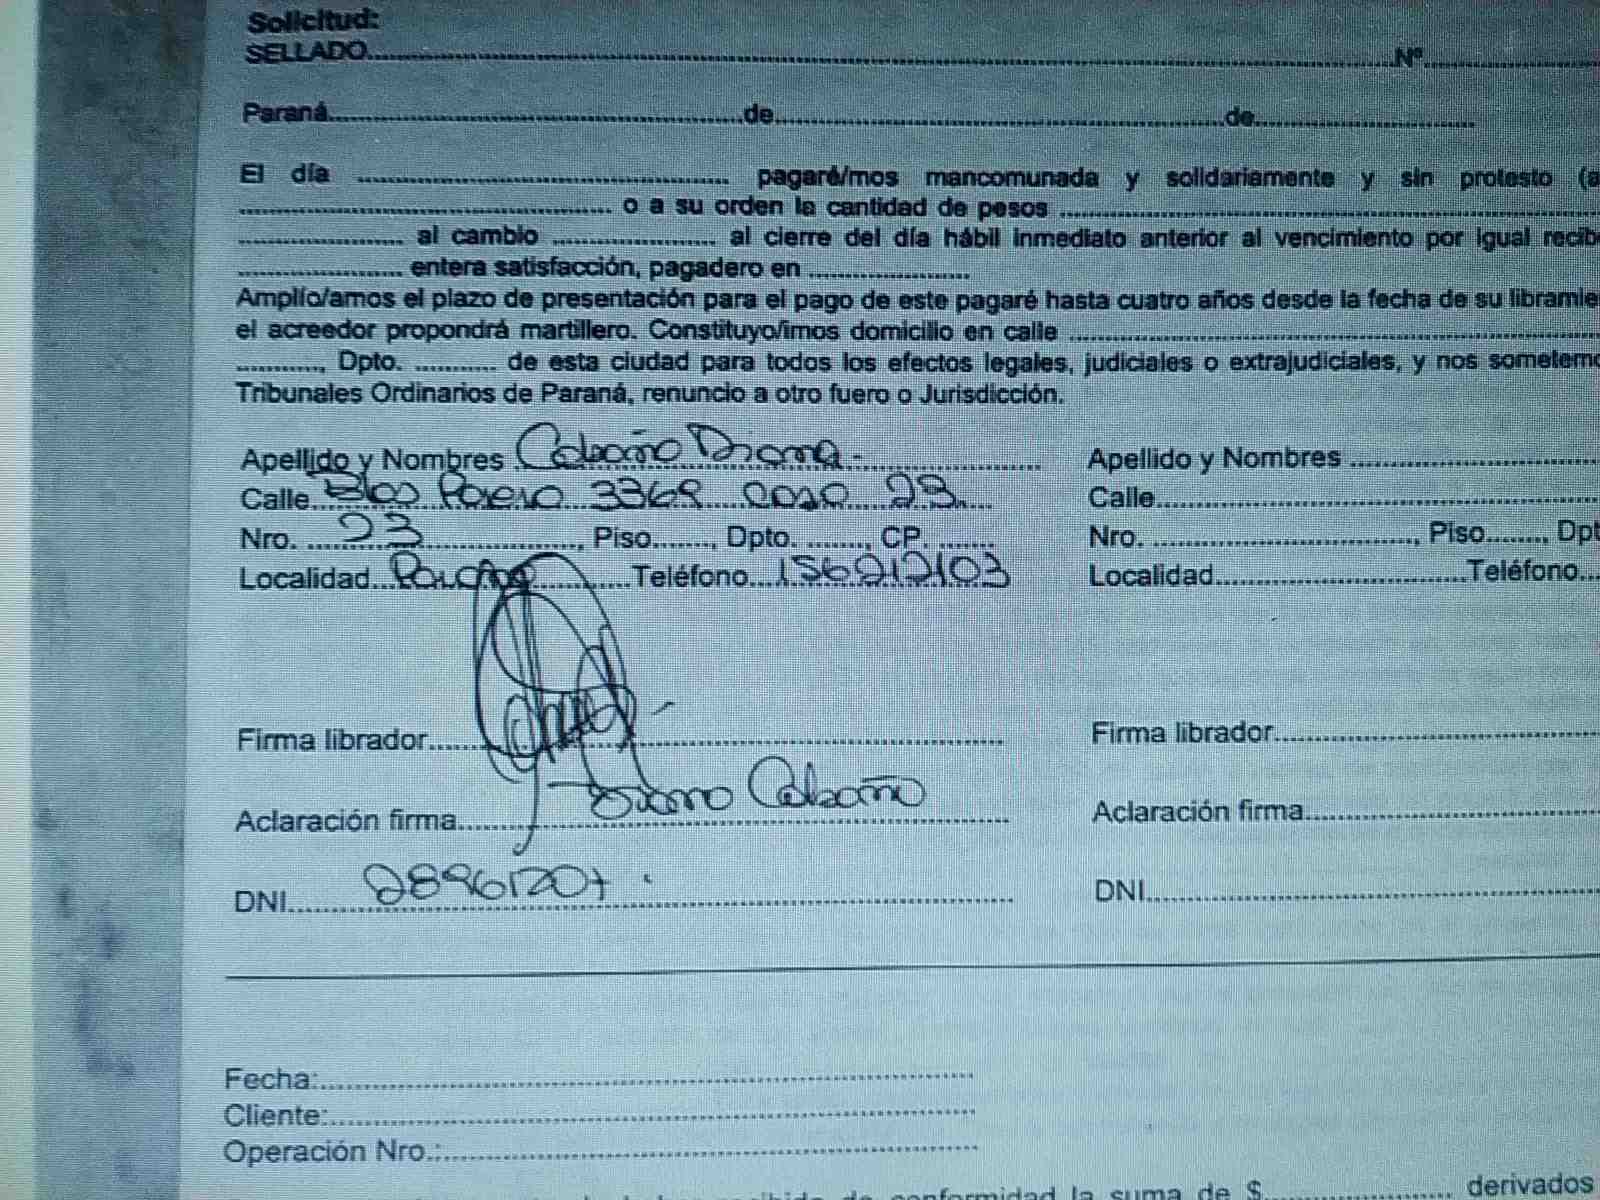 Solicitud:
SELLADO........................................Nº....................
Paraná........................................de........................................de....................
El día ........................................ pagaré/mos mancomunada y solidariamente y sin protesto (a
........................................ o a su orden la cantidad de pesos ........................................
.................... al cambio .................... al cierre del día hábil inmediato anterior al vencimiento por igual recib
.................... entera satisfacción, pagadero en ....................
Amplío/amos el plazo de presentación para el pago de este pagaré hasta cuatro años desde la fecha de su libramie
el acreedor propondrá martillero. Constituyo/imos domicilio en calle ........................................
..........., Dpto. .......... de esta ciudad para todos los efectos legales, judiciales o extrajudiciales, y nos sometemo
Tribunales Ordinarios de Paraná, renuncio a otro fuero o Jurisdicción.
Apellido y Nombres Cabaño Diana.- Apellido y Nombres ....................
Calle Blas Parera 3369 casa 23. Calle....................
Nro. 23, Piso......., Dpto. ......., CP. ....... Nro. ...................., Piso......., Dpt
Localidad Paraná Teléfono 156212103 Localidad....................Teléfono...
Firma librador.................... Firma librador....................
Aclaración firma Diana Cabaño Aclaración firma....................
DNI 28961207. DNI....................
Fecha:....................
Cliente:....................
Operación Nro.:....................
de conformidad la suma de $.................... derivados